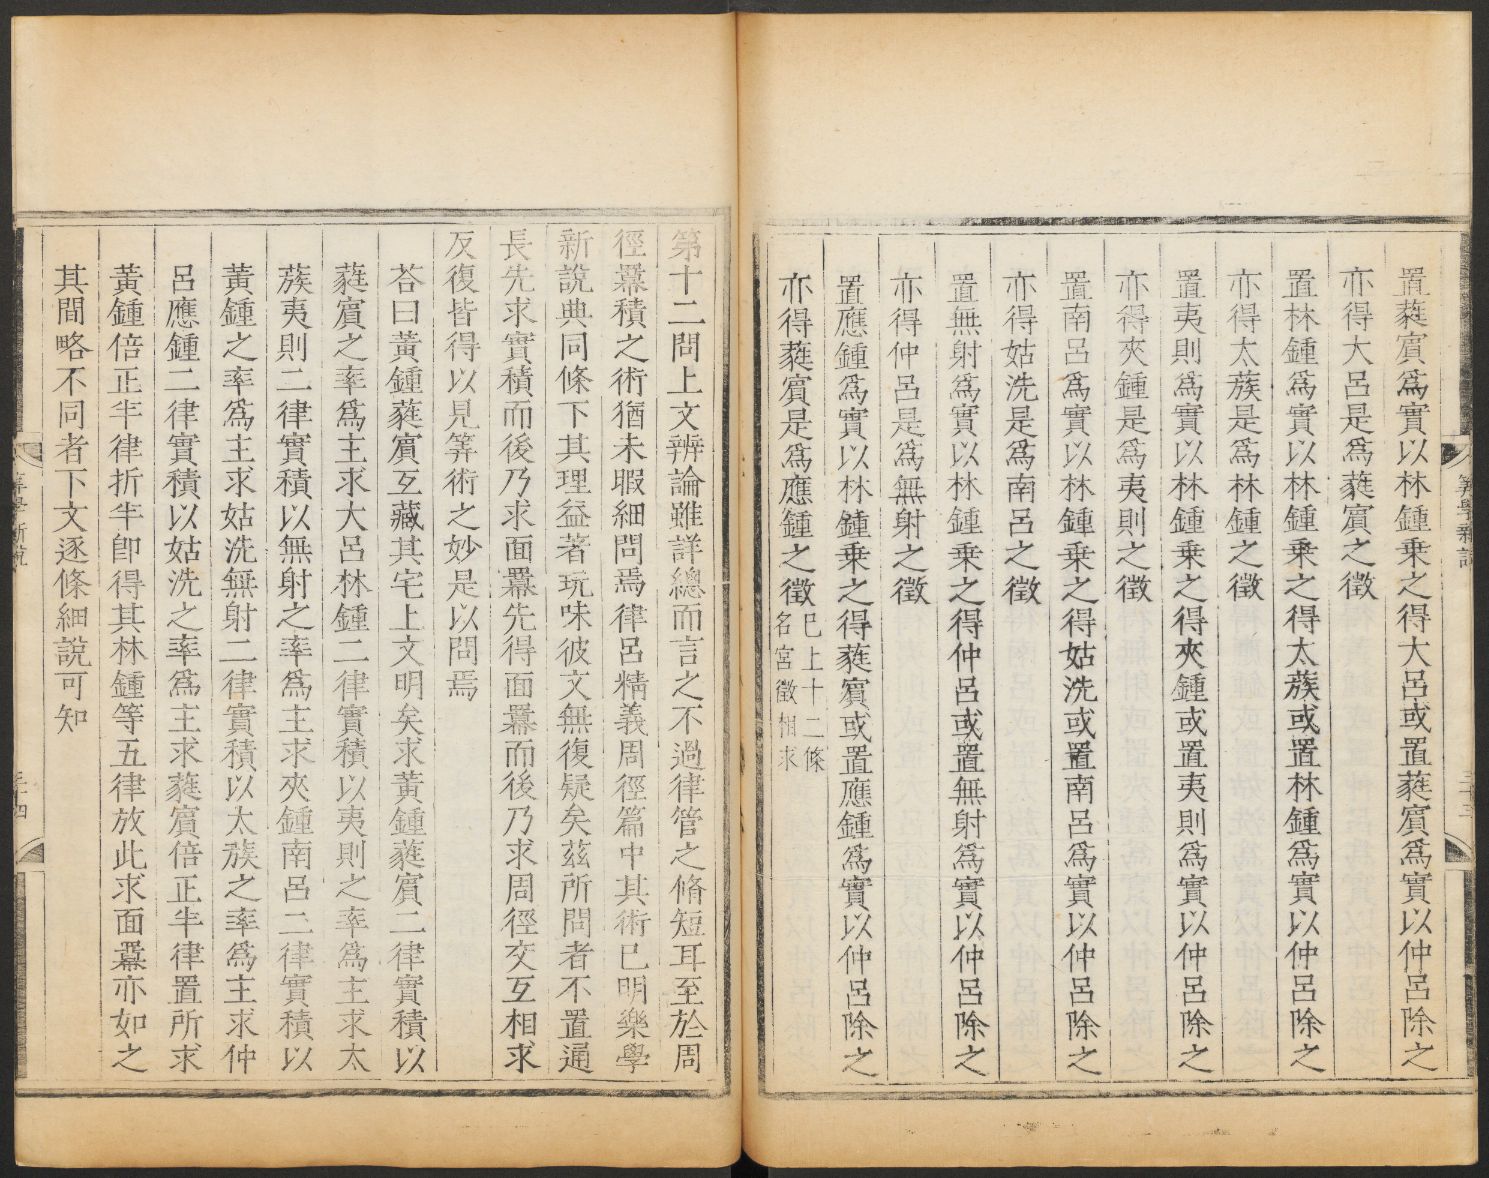 置蕤賔爲實以林鍾乗之得大呂或置蕤賔爲實以仲呂除之
亦得大呂是爲蕤賔之徵
置林鍾爲實以林鍾乗之得太蔟或置林鍾爲實以仲呂除之
亦得太蔟是爲林鍾之徵
置夷則爲實以林鍾乗之得夾鍾或置夷則爲實以仲呂除之
亦得夾鍾是爲夷則之徵
置南呂爲實以林鍾乗之得姑洗或置南呂爲實以仲呂除之
亦得姑洗是爲南呂之徵
置無射爲實以林鍾乗之得仲呂或置無射爲實以仲呂除之
亦得仲呂是爲無射之徵
置應鍾爲實以林鍾乗之得蕤賔或置應鍾爲實以仲呂除之
亦得蕤賔是爲應鍾之徵已上十二條
名宮徵相求
筭學新說
三十三
第十二問上文辨論雖詳總而言之不過律管之脩短耳至於周
徑羃積之術猶未暇細問焉律呂精義周徑篇中其術已明樂學
新說典同條下其理益著玩味彼文無復疑矣茲所問者不置通
長先求實積而後乃求面羃先得面羃而後乃求周徑交互相求
反復皆得以見筭術之妙是以問焉
荅曰黃鍾蕤賔互藏其宅上文明矣求黃鍾蕤賔二律實積以
蕤賔之率爲主求大呂林鍾二律實積以夷則之率爲主求太
蔟夷則二律實積以無射之率爲主求夾鍾南呂二律實積以
黃鍾之率爲主求姑洗無射二律實積以太蔟之率爲主求仲
呂應鍾二律實積以姑洗之率爲主求蕤賔倍正半律置所求
黃鍾倍正半律折半卽得其林鍾等五律放此求面羃亦如之
其間略不同者下文逐條細說可知
筭學新說
三十四